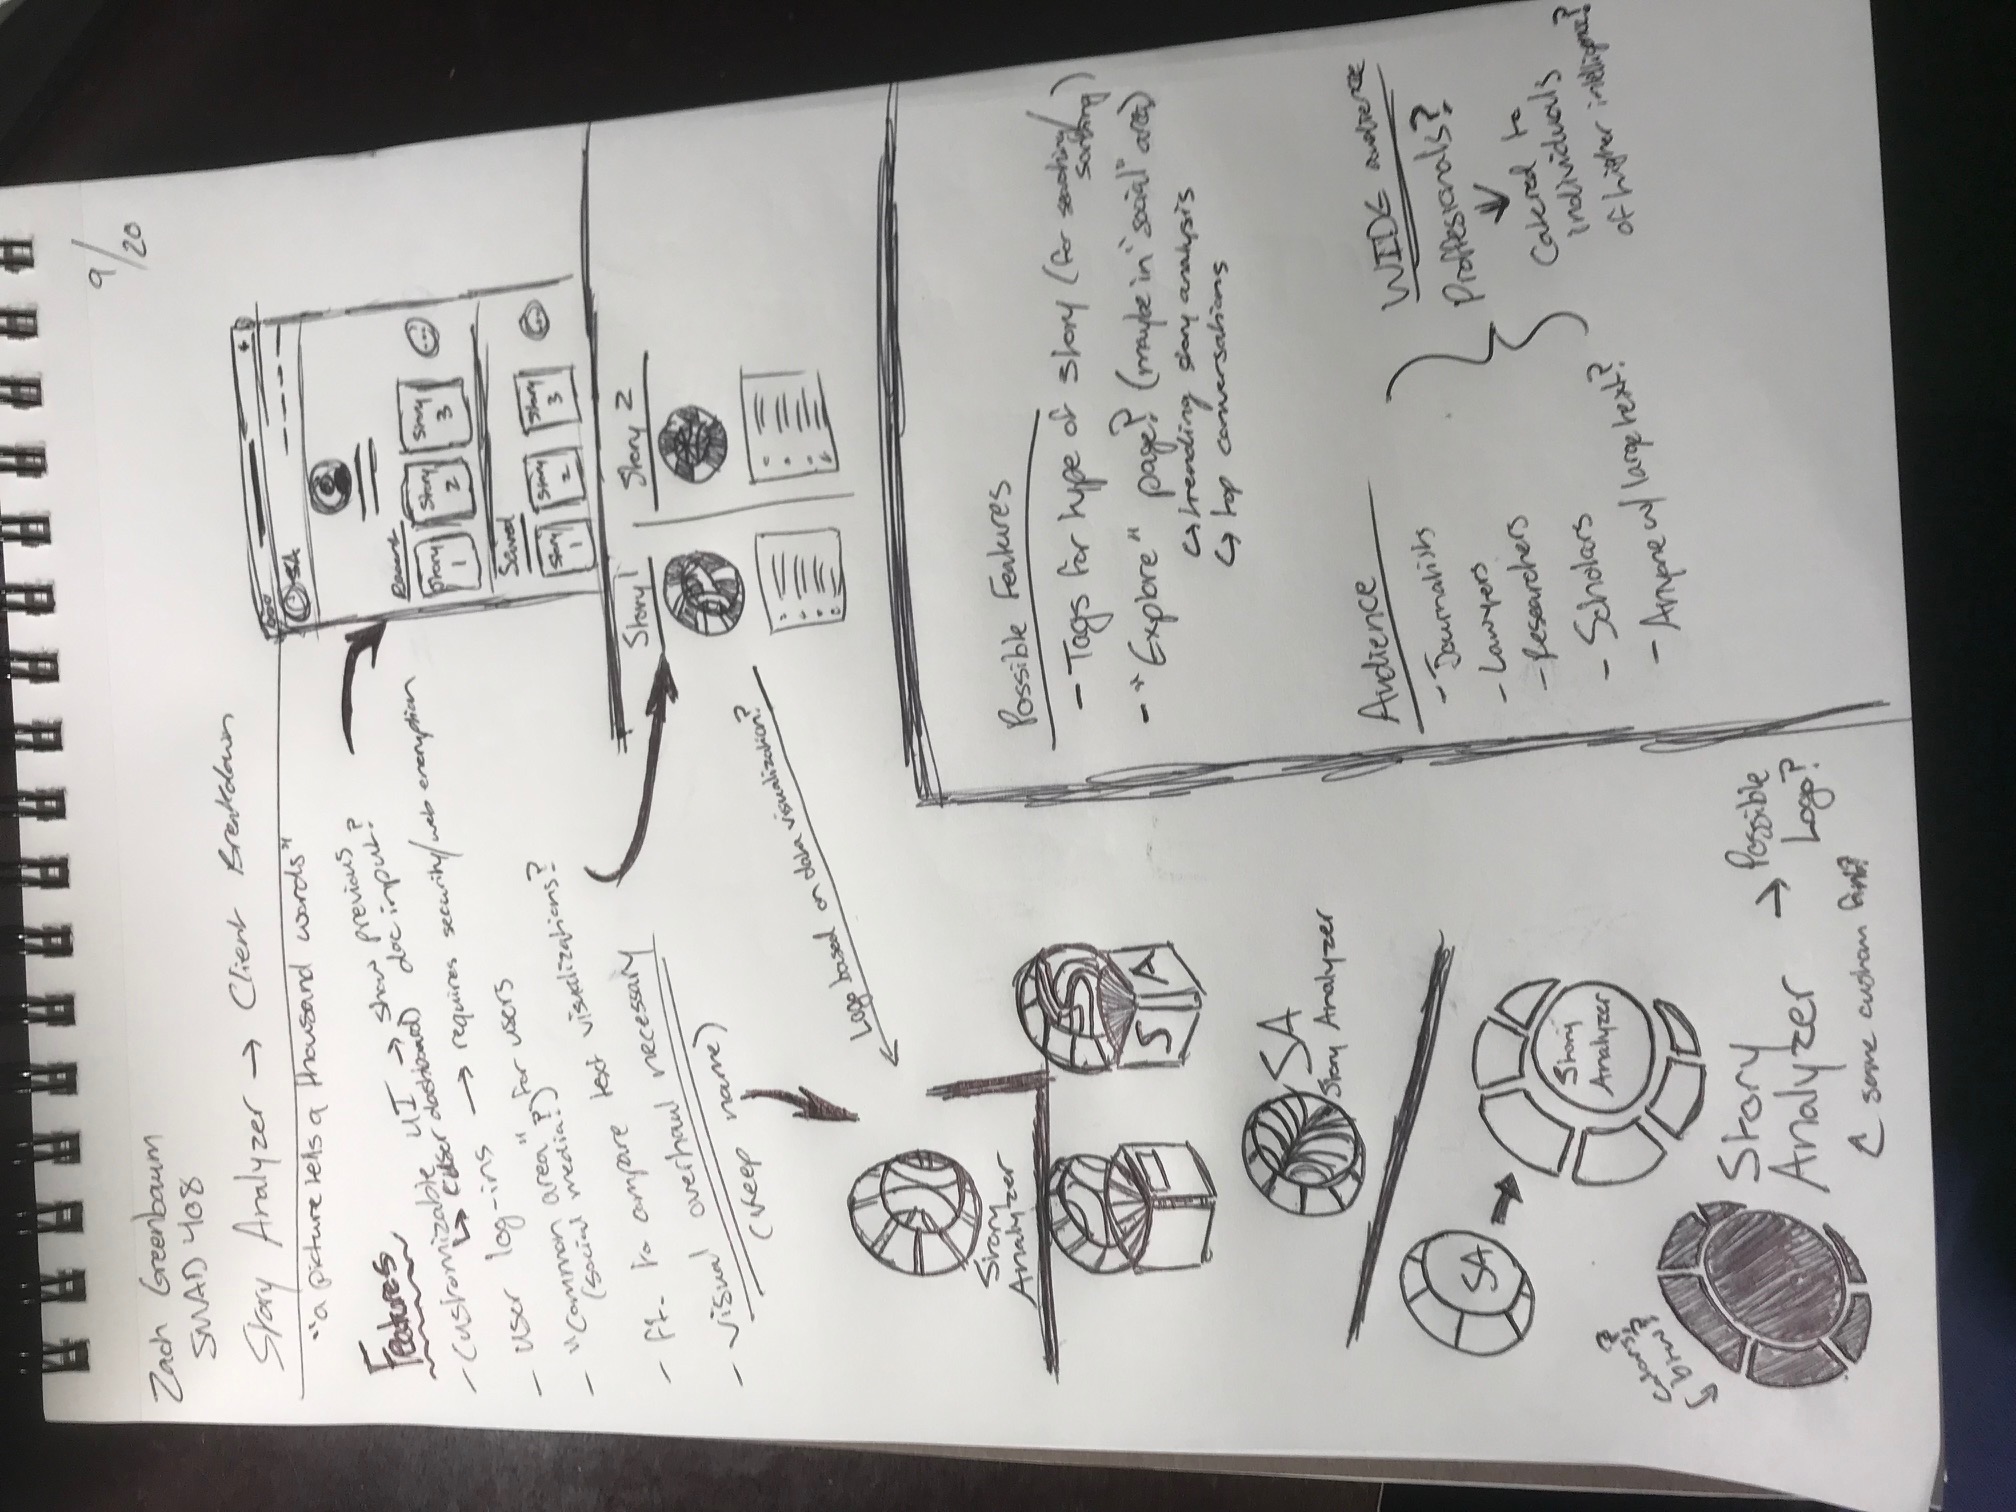 9/20
Zach Greenbaum
SMAD 408
Story Analyzer → Client Breakdown
"a picture tells a thousand words"
Features
- Customizable UI → show previous
↳ (user dashboard) doc input?
- User log-ins → requires security/web encryption
- "Common area" for users
(social media?)
- ft. to compare text visualizations?
- visual overhaul necessary
(keep name)
SA
Recent
Story 1
Story 2
Story 3
Saved
Story 1
Story 2
Story 3
Story 1
Story 2
Logo based on data visualization?
Story
Analyzer
S A
SA
Story Analyzer
SA
Story
Analyzer
colors?
b+w?
Story
Analyzer
→ Possible
Logo?
some custom font?
Possible Features
- Tags for type of story (for searching/
sorting)
- "Explore" page? (maybe in "social" area)
↳ trending story analysis
↳ top conversations
Audience
- Journalists
- Lawyers
- Researchers
- Scholars
- Anyone w/ large text?
WIDE audience
Proffesionals?
Catered to
individuals
of higher intelligence?